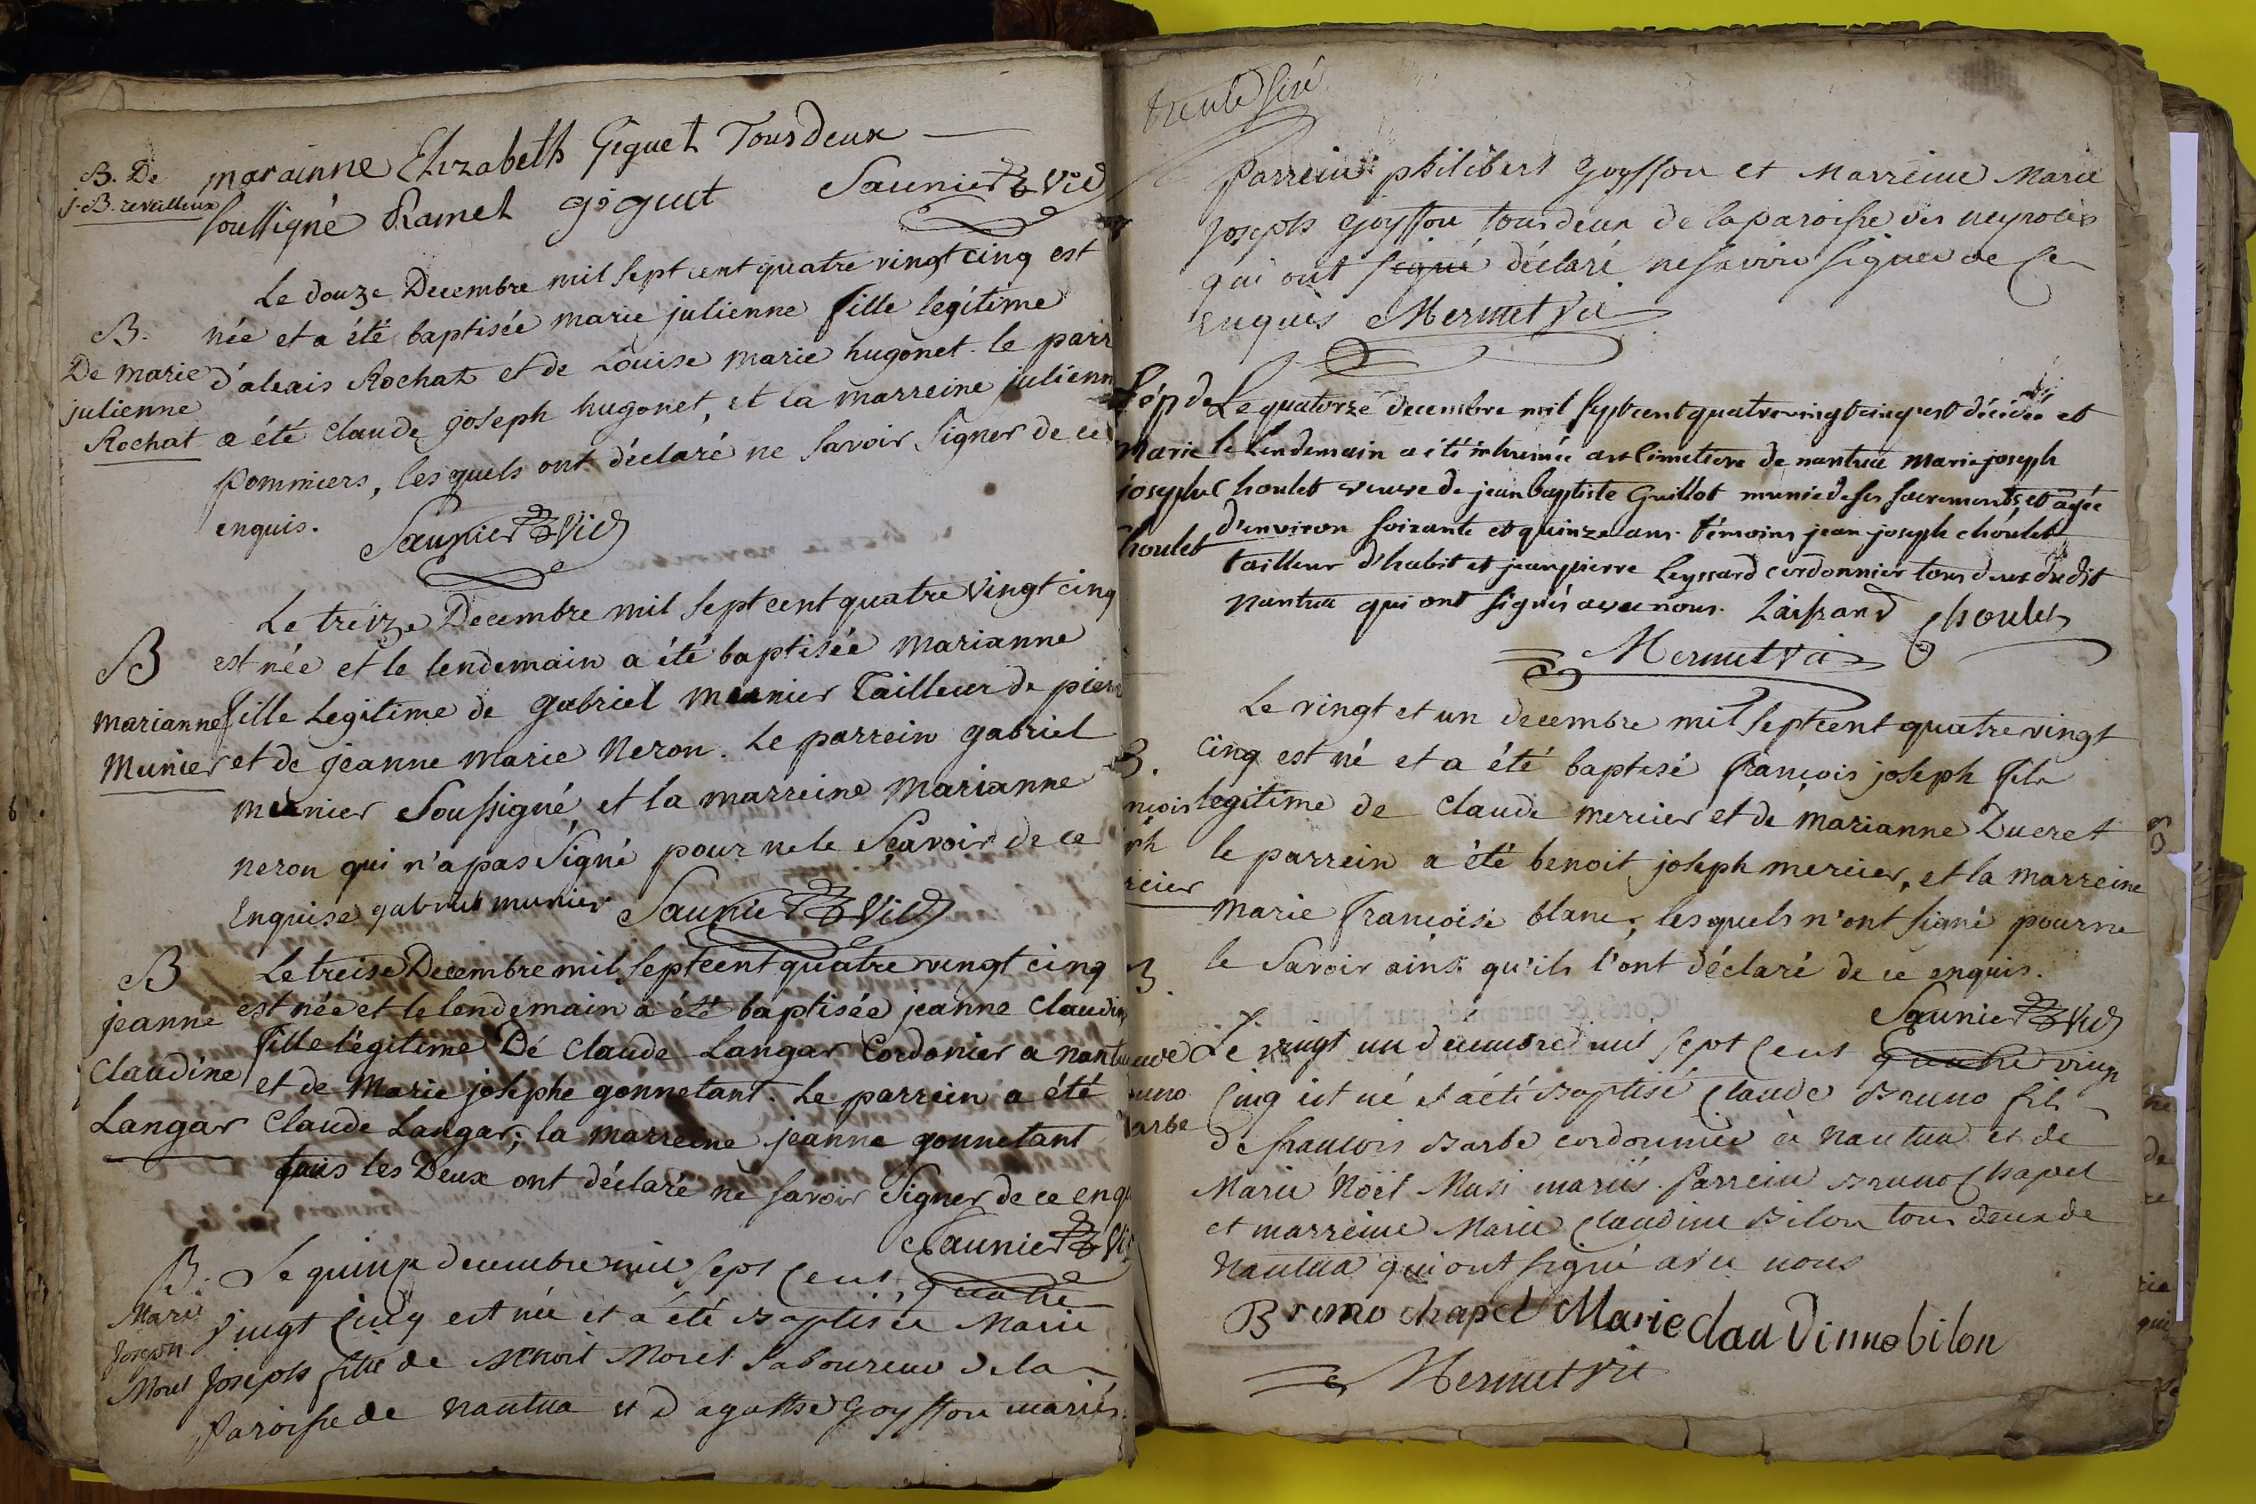 B. De
j. B. reveilleux
marainne Elizabeth Giguet Tous deux
soussigné Ramel giguet Saunier Vic
Le douze Decembre mil sept cent quatre vingt cinq est
B.
De marie
julienne
Rochat
née et a été baptisée marie julienne fille legitime
d'alexis Rochat et de Louise marie hugonet. le parr
a été Claude joseph hugonet, et la marreine julienn
pommiers, lesquels ont déclaré ne savoir signer de ce
enquis. Saunier Vic
Le treize Decembre mil sept cent quatre vingt cinq
B
marianne
Munier
est née et le lendemain a été baptisée marianne
fille Legitime de gabriel munier Tailleur de pierr
et de jeanne marie Neron. Le parrein gabriel
munier soussigné, et la marreine marianne
neron qui n'a pas signé pour ne le sçavoir de ce
Enquise gabriel munier Saunier Vic
B
jeanne
Claudine
Langar
Le treise Decembre mil sept cent quatre vingt cinq
est née et le lendemain a été baptisée jeanne Claudin
fille légitime De Claude Langar Cordonier a nant
et de Marie josephe gonnetant. Le parrein a été
Claude Langar; la marreine jeanne gonnetant
tous les Deux ont déclaré ne savoir signer de ce enqu
Saunier Vi
B.
Marie
Joseph
Moret
Le quinze decembre mil sept cent quatre
vingt cinq est née et a été Baptisée Marie
Joseph fille de Benoit Moret Laboureur de la
paroisse de nantua et d'agathe Goyffon mariés.
trente six
Parrein philibert Goyffon et Marreine Marie
Joseph Goyffon tous deux de la paroisse des neyroles
qui ont signé déclaré ne savoir signer de ce
Enquis Mermet Vic
Sép de
Marie
joseph
Choulet
Le quatorze decembre mil sept cent quatre vingt cinq est décédée et
le Lendemain a été inhumée au Cimetiere de nantua marie joseph
Choulet veuve de jean baptiste Guillot munie de ses sacrements, et agée
d'environ soixante et quinze ans. témoins jean joseph choulet
tailleur d'habit et jean pierre Leyssard cordonnier tous deux dudit
Nantua qui ont signés avec nous. Laissard Choulet
Mermet Vic
Le vingt et un decembre mil sept cent quatre vingt
B.
nçois
ph
rcier
cinq est né et a été baptisé françois joseph fils
legitime de Claude mercier et de marianne Ducret
le parrein a été benoit joseph mercier, et la marreine
marie françoise blanc, lesquels n'ont signé pour ne
le savoir ainsi qu'ils l'ont déclaré de ce enquis.
Saunier Vic
B
aude
runo
Barbe
Le vingt un decembre mil sept cent quatre vingt
Cinq est né et a été Baptisé Claude Bruno fils
de françois Barbe cordonnier à Nantua et de
Marie Noël Musi mariés. Parrein Bruno Chapel
et marreine Marie Claudine Bilon tous deux de
Nantua qui ont signé avec nous
Bruno chapel Marie claudinne bilon
Mermet Vic